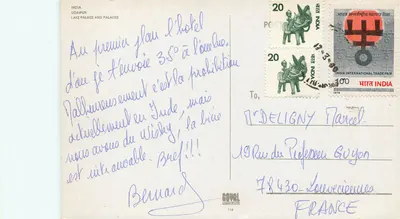 INDIA
UDAIPUR
LAKE PALACE AND PALACES
Au premier plan l'hôtel
d'où je t'envoie 35° à l'ombre.
Malheureusement c'est la prohibition
actuellement en Inde, mais
nous avons du Wisky, la bière
est introuvable. Bref!!!
Bernard
POST
To,
20
भारत INDIA
20
भारत INDIA
INDIA INTERNATIONAL TRADE FAIR
100 भारत INDIA
Mr DELIGNY Marcel
19 Rue du Professeur Guyon
78430 - Louveciennes
FRANCE
ROYAL